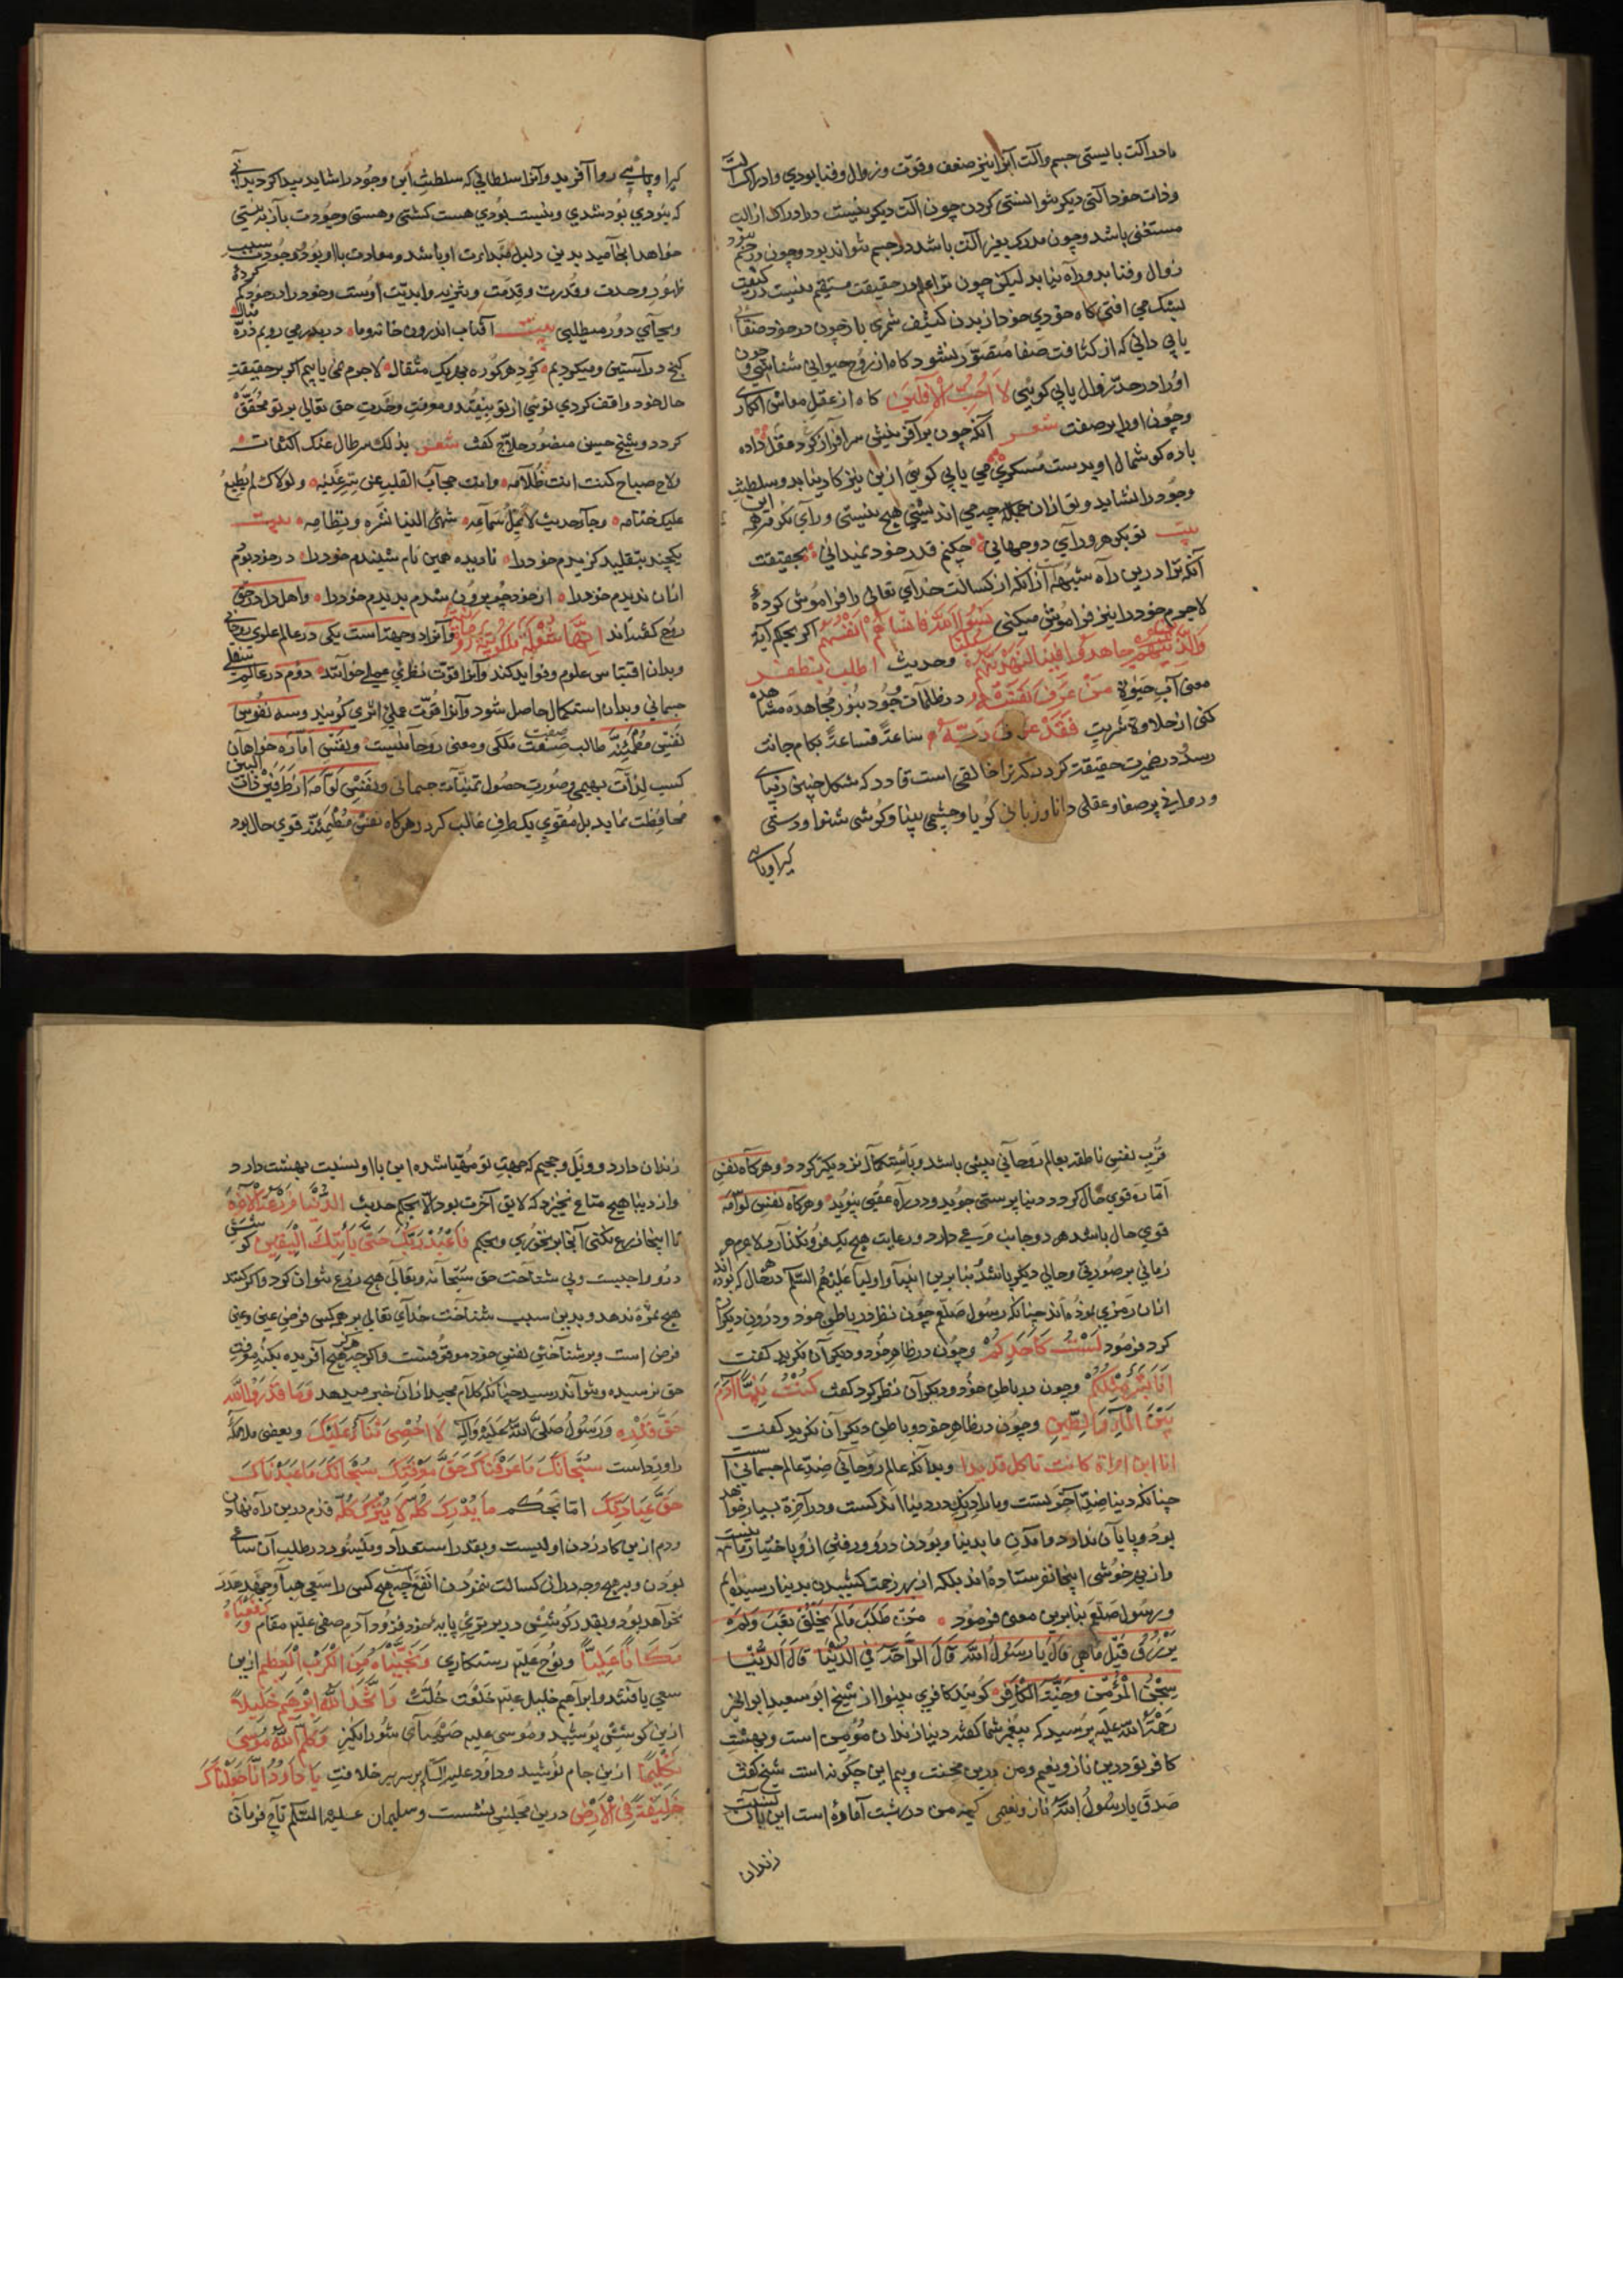 مادر آلت بایستی جسم و آلت آنرا نیز ضعف و قوّت و زوال و فنا بودی و ادراک
و ذات خود آلتی دیگر نتوانستی کردن چون آلت دیگر نیست و در ادراک از آلت
مستغنی باشد و چون مدرک بغیر آلت باشد در جسم نتواند بود و چون در جسم نبود
زوال و فنا بدو راه نیابد لیکن چون ترا علم در حقیقت مستقیم نیست در کیفیت
بشک می افتی کاه خودی خود از بدن کثیف شمری باز چون در خود صفای
یابی دانی که از کثافت صفا متصوّر نشود کاه از روح حیوانی شناسی و چون
او را در حدّ زوال یابی کویی لَا أُحِبُّ الْآفِلِينَ کاه از عقل معاش انکاری
و چون او را بر صفت شعر آنکه چون بر آفرینش سر افراز کرد عقل داده
باده کو شمال او بدست مسکری می یابی کویی ازین نیز کار نیاید و سلطنت
وجود را نشاید و تو از ان جمله چه می اندیشی هیچ نیستی و رای هر
بیت تو بکوهر ورای دو جهانی چکنم قدر خود نمیدانی بحقیقت
آنکه ترا درین راه شبهه از آنکه از کسالت خدای تعالی را فراموش کرده
لاجرم خود را نیز فراموش میکنی نَسُوا اللَّهَ فَأَنْسَاهُمْ أَنْفُسَهُمْ اکر بحکم آیة
وَالَّذِينَ جَاهَدُوا فِينَا لَنَهْدِيَنَّهُمْ سُبُلَنَا و حدیث اطلب تظفر
معنی آب حیوة مَنْ عَرَفَ نَفْسَهُ در ظلمات وجود بنور مجاهده مشاهده
کنی از حلاوة شربت فَقَدْ عَرَفَ رَبَّهُ ساعةً فساعةً بکام جانت
رسد در ضمیرت حقیقت کردد که ترا خالقی است قادر که شکل چنین زیبای
و روانی پر صفا و عقلی دانا و زبانی کویا و چشمی بینا و کوشی شنوا و دستی
کیرا و پای
کیرا و پایی روا آفرید و آنرا سلطانی که سلطنت این وجود را شاید پیدا کردید
که نبودی بود شدی و نیست بودی هست کشتی و هستی وجودت باز به نیستی
خواهد انجامید بدین دلیل مبداءت او باشد و معادت با او بود وجودت سبب
ظهور وحدت و قدرت و قدمت و تنزیه و ابدیت اوست و خود را در خود کم کردهٔ
و بجای دور میطلبی بیت آفتاب اندرون خانه و ما در بدر می رویم ذرّه مثال
کنج در آستین و میکردیم کرد هر کوره بهر یک مثقال لاجرم نمی یابیم اکر بر حقیقت
حال خود واقف کردی تویی از تو بیفتد و معرفت وحدت حق تعالی بر تو محقّق
کردد و شیخ حسین منصور حلاج کفت شعر بذلک سر طال عنک اکتتامه
ولاح صباح کنت انت ظلامه وانت حجاب القلب عن سر غیبه ولولاک لم یطبع
علیک ختامه وجاء حدیث لا یملّ سماعه شهیّ الینا نثره ونظامه بیت
یکچند بتقلید کزیدم خود را نادیده همین نام شنیدم خود را در خود بودم
از ان ندیدم خود را از خود چو برون شدم بدیدم خود را و اهل دل در حق
روح کفته اند و آنرا دو جهتست یکی در عالم علوی روحانی
و بدان اقتباس علوم و فواید کند و آنرا قوّت نظری عملی خوانند دوم در عالم سفلی
جسمانی و بدان استکمال حاصل شود و آنرا قوّت عملی اثری کویند و سه نفوس
نفس مطمئنّه طالب صفت ملکی و معنی روحانیست و نفس امّاره خواهان
کسب لذّات بهیمی و صورت حصول تمنیات جسمانی و نفس لوّامه از طرفین ذات البین
محافظت نماید بل مقوّی یک طرف غالب کردد هرکاه نفس مطمئنّه قوی حال بود
قرب نفس ناطقه بعالم روحانی بیش باشد و باستکمال نزدیکتر کردد و هرکاه نفس
امّاره قوی حال کردد دنیا پرستی جوید و در راه عقبی نپوید و هرکاه نفس لوّامه
قوی حال باشد هر دو جانب مرعی دارد و رعایت هیچ یک فرو نکذارد لاجرم هر
زمانی بر صورتی و حالی دیکر باشد بنا برین انبیا و اولیا علیهم السّلم در هر حال که بوده اند
از ان رمزی نموده اند چنانکه رسول صلعم چون نظر در باطن خود و درون دیکران
کرد فرمود لَسْتُ كَأَحَدِكُمْ و چون در ظاهر خود و دیکران نکرید کفت
أَنَا بَشَرٌ مِثْلُكُمْ و چون در باطن خود و دیکران نظر کرد کفت كُنْتُ نَبِيًّا وَآدَمُ
بَيْنَ الْمَاءِ وَالطِّينِ و چون در ظاهر خود و باطن دیکران نکرید کفت
انا ابن امراة کانت تاکل قدیدا و بدانکه عالم روحانی ضدّ عالم جسمانی است
چنانکه دنیا ضدّ آخرتست و ما را درنک در دنیا اندکست و در آخرة بسیار خواهد
بود و پایان ندارد و آمدن ما بدنیا و بودن درو و رفتن ازو باختیار ما نیست
و از بهر خوشی اینجا نفرستاده اند بلکه از بهر زحمت کشیدن بدنیا رسیده ایم
و رسول صلعم بنا برین معنی فرمود مَنْ طَلَبَ مَا لَمْ يُخْلَقْ تَعِبَ وَلَمْ
يُرْزَقْ قِيلَ مَا هِيَ قَالَ يَا رَسُولَ اللَّهِ قَالَ الرَّاحَةُ فِي الدُّنْيَا قَالَ الدُّنْيَا
سِجْنُ الْمُؤْمِنِ وَجَنَّةُ الْكَافِرِ کویند کافری بینوا از شیخ ابو سعید ابو الخیر
رحمة الله علیه پرسید که پیغمبر شما کفته دنیا زندان مؤمن است و بهشت
کافر تو درین ناز و نعیم و من درین محنت و بیم این چکونه است شیخ کفت
صدق یا رسول الله ناز و نعیمی که من در بهشت آماده است این با آن نسبت
زندان
زندان دارد و ویل و جحیم که جهت تو مهیّا شده این با او نسبت بهشت دارد
و از دنیا هیچ متاع نخیزد که لایق آخرت بود الّا بحکم حدیث الدُّنْيَا مَزْرَعَةُ الْآخِرَةِ
تا اینجا زرع نکنی آنجا بر نخوری و بحکم فَاعْبُدْ رَبَّكَ حَتَّى يَأْتِيَكَ الْيَقِينُ کوشش
درو واجبست و بی شناخت حق سبحانه و تعالی هیچ زرع نتوان کرد و اکر کنند
هیچ ثمره ندهد و بدین سبب شناخت خدای تعالی بر هر کسی فرض عین و عین
فرض است و بر شناختن نفس خود موقوفست و اکر چه هرکز هیچ آفریده بکنه معرفت
حق نرسیده و نتواند رسید چنانکه کلام مجید از ان خبر میدهد وَمَا قَدَرُوا اللَّهَ
حَقَّ قَدْرِهِ و رسول صلّی الله علیه وآله لَا أُحْصِي ثَنَاءً عَلَيْكَ و بعضی ملائکه
را وردست سُبْحَانَكَ مَا عَرَفْنَاكَ حَقَّ مَعْرِفَتِكَ سُبْحَانَكَ مَا عَبَدْنَاكَ
حَقَّ عِبَادَتِكَ امّا بحکم مَا لَا يُدْرَكُ كُلُّهُ لَا يُتْرَكُ كُلُّهُ قدم درین راه نهادن
و دم ازین کار زدن اولیست و بقدر استعداد و میسور در طلب آن ساعی
بودن و بهیچ وجه در ان کسالت ننمودن انفع است چه هیچ کس را سعی هبا و جهد هدر
نخواهد بود و بقدر کوشش در برتری پایه خود فزود آدم صفی علیم مقام وَرَفَعْنَاهُ
مَكَانًا عَلِيًّا و نوح علیم رستکاری وَنَجَّيْنَاهُ مِنَ الْكَرْبِ الْعَظِيمِ ازین
سعی یافتند و ابراهیم خلیل علیم خلعت خلّت وَاتَّخَذَ اللَّهُ إِبْرَاهِيمَ خَلِيلًا
ازین کوشش پوشید و موسی علیم صهبای شورانکیز وَكَلَّمَ اللَّهُ مُوسَى
تَكْلِيمًا ازین جام نوشید و داود علیه السّلم بر سریر خلافت يَا دَاوُدُ إِنَّا جَعَلْنَاكَ
خَلِيفَةً فِي الْأَرْضِ درین مجلس نشست و سلیمان علیه السّلم تاج فرمانی